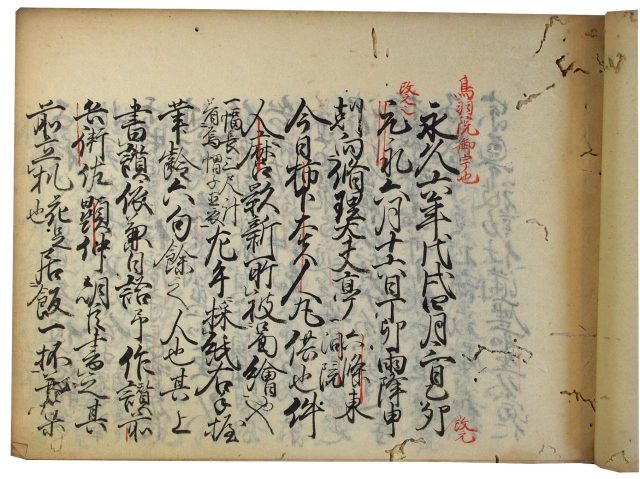 鳥羽院御宇也
永久六年戊戌四月卯
改元
改元
元永六月十六日丁卯雨降申
剋向修理大夫亭 六條東
洞院
今日柿下大夫人丸供也件
人麿影新所被啚繪也
一幅長三尺計
着烏帽子直衣
左手操紙右手握
筆齢六旬餘之人也其上
書讃依兼日語予作讃前
兵衛佐顯仲朝臣書之其
前立机花足居飯一杯菓